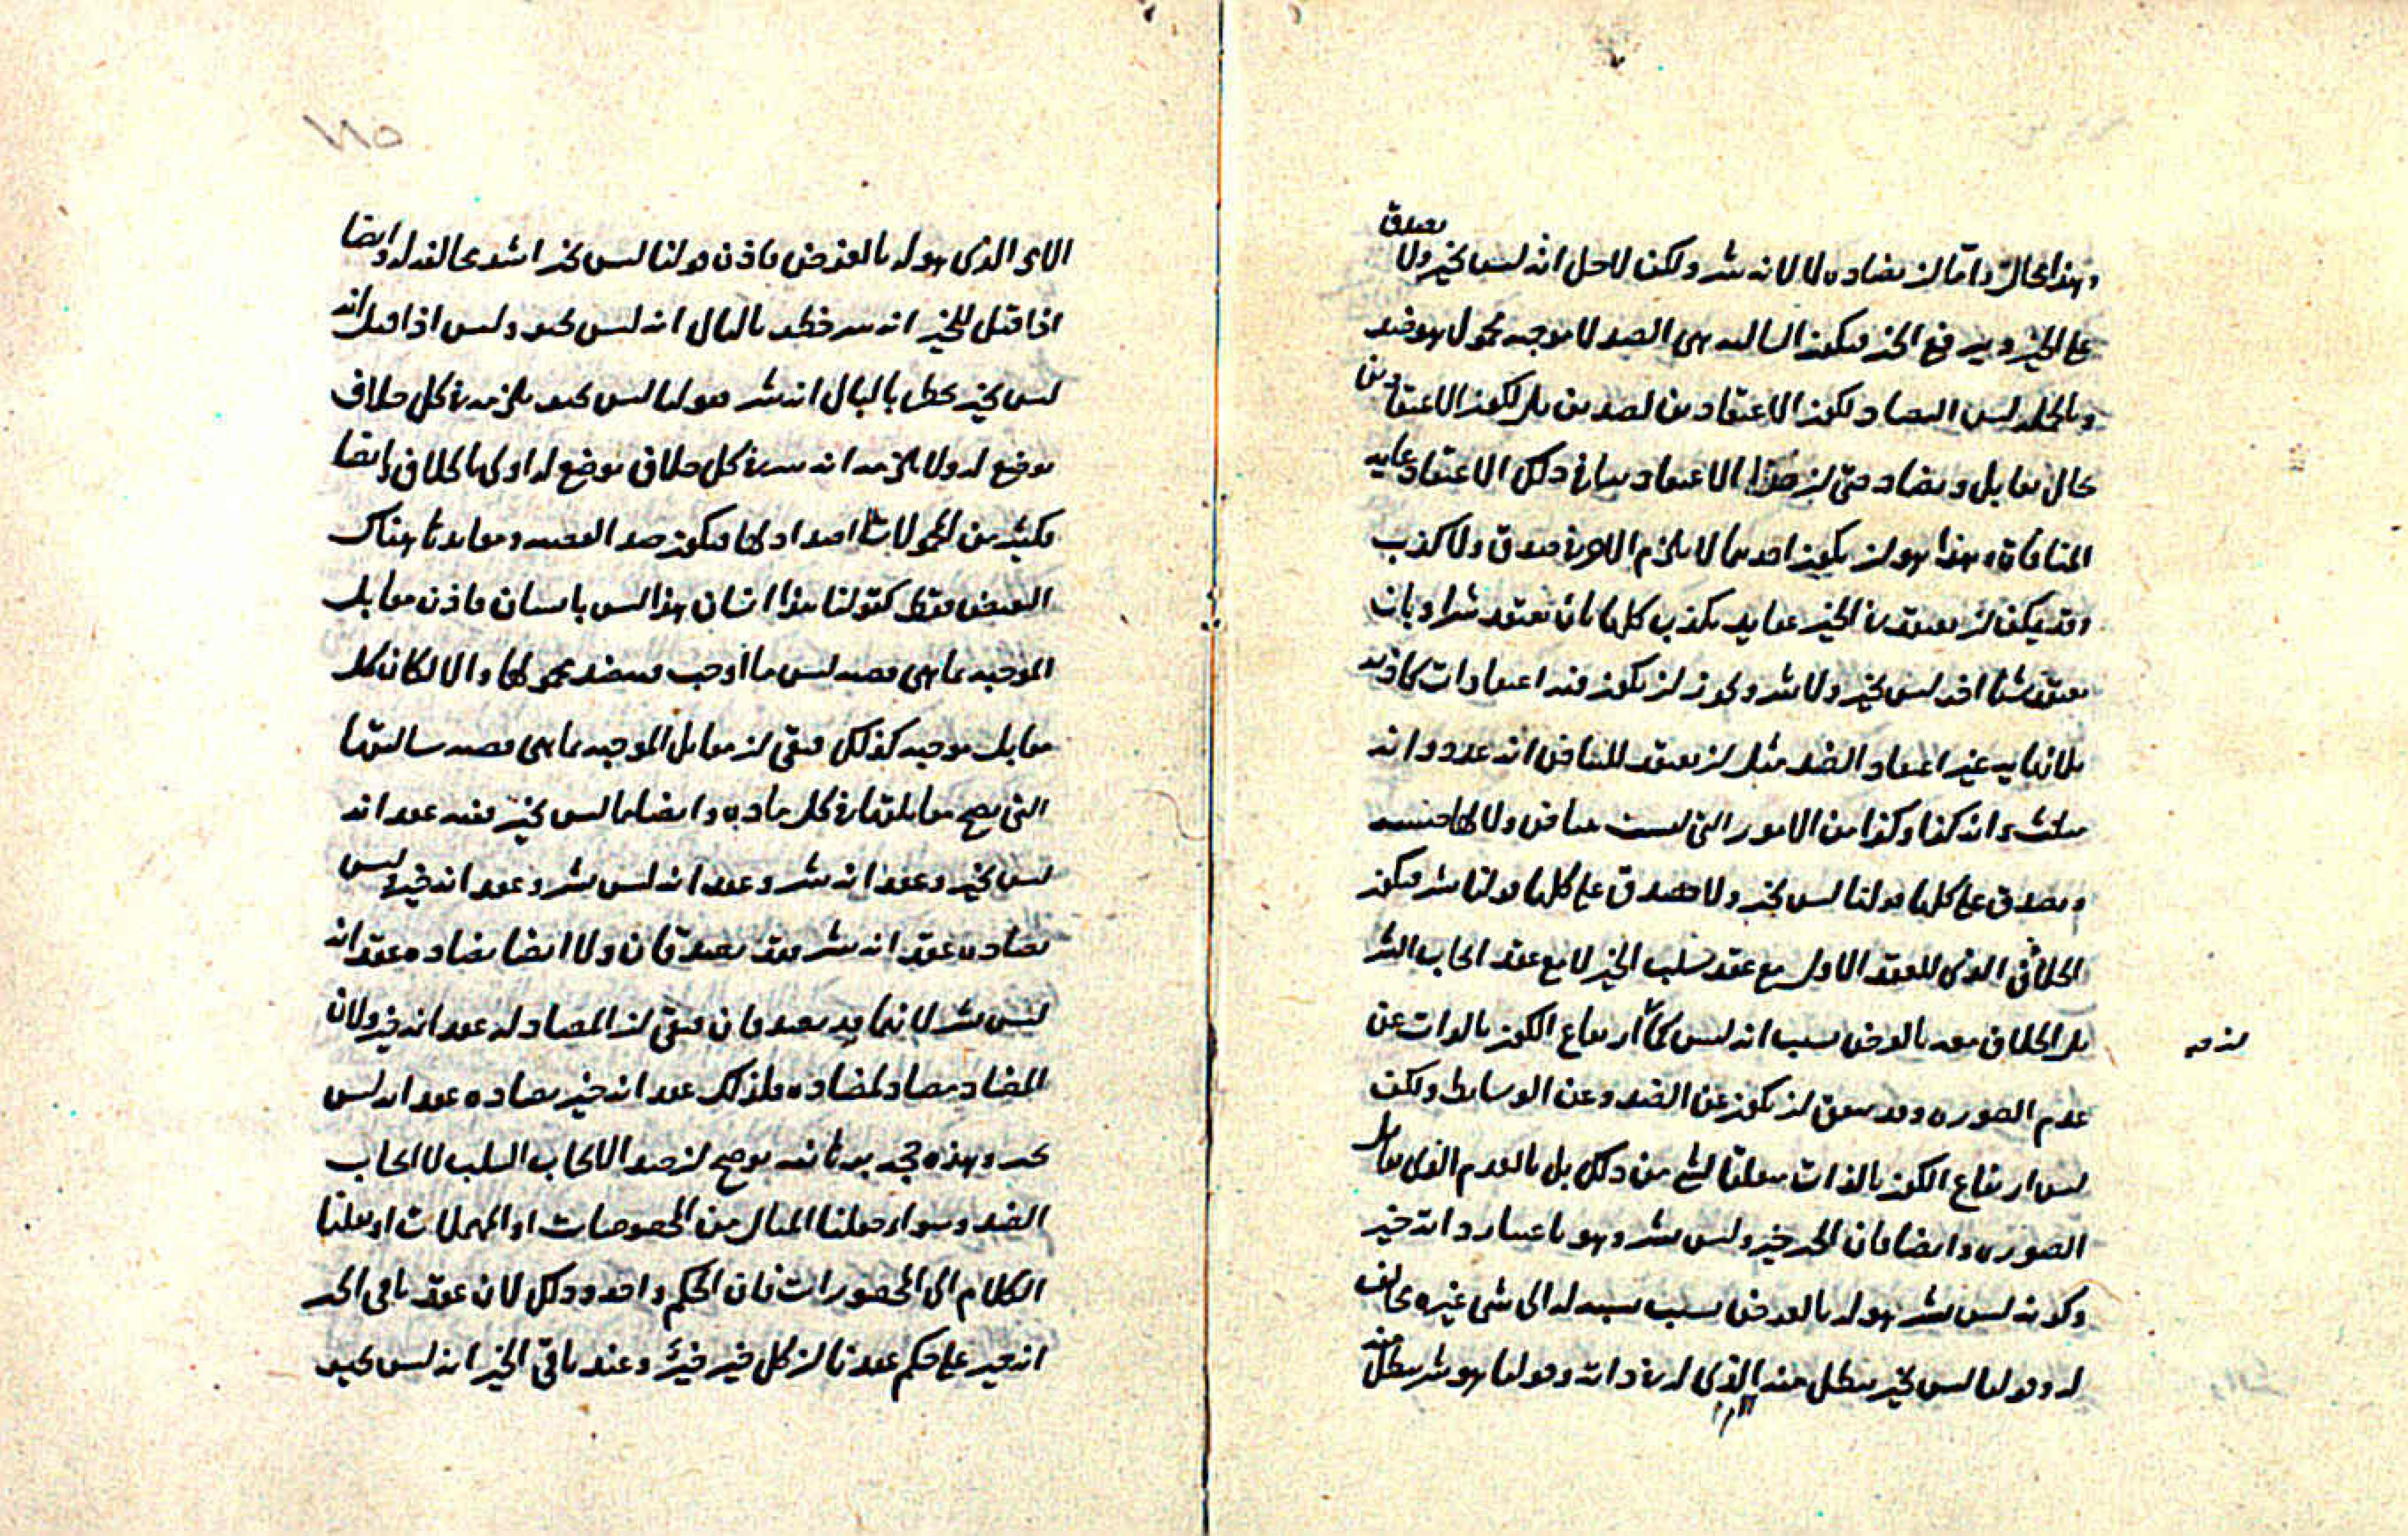 وهذا محال واما ان يضاده لا لانه شر ولكن لاجل انه ليس بخير ولا يصدق
على الخير ويرفع الخير فيكون السالبه هي الضد لا موجبه محمول هو ضد
وبالجمله ليس التضاد لكون الاعتقادين لضدين بل لكون الاعتقادين
بحال تقابل وتضاد حتى ان هذا الاعتقاد ينافي ذلك الاعتقاد غايه
المنافاة وهذا هو ان يكون احدهما لا يلزم الاخر في صدق ولا كذب
وقد يمكن ان يعتقد في الخير عقايد يكذب كلها بان يعتقد شرا وبان
يعتقد شيئا اخر ليس بخير ولا شر ويجوز ان يكون فيه اعتقادات كاذبه
بلا نهايه غير اعتقاد الضد مثل ان يعتقد للبياض انه عدد وانه
مثلث وانه كذا وكذا من الامور التي ليست ببياض ولا لها
ويصدق على كلها قولنا ليس بخير ولا يصدق على كلها قولنا شر فيكون
الخلاف الذي للعقد الاول مع عقد سلب الخير لا مع عقد ايجاب الشر
بل الخلاف معه بالعرض بسبب انه ليس كما ارتفاع الكون بالذات عن
عدم الصوره وقد يتفق ان يكون عن الضد وعن الوسايط ولكن
ليس ارتفاع الكون بالذات متعلقا لشي من ذلك بل بالعدم الذي يقابل
الصوره وايضا فان الخير خير وليس بشر وهو باعتبار ذاته خير
وكونه ليس بشر هو له بالعرض بسبب نسبه له الى شي غيره مخالف
له وقولنا ليس بخير يبطل منه الذي له في ذاته وقولنا هو شر يبطل منه
الامر الذي هو له بالعرض فاذن قولنا ليس بخير اشد مخالفه له وايضا
اذا قيل للخير انه شر خطر بالبال انه ليس بخير وليس اذا قيل انه
ليس بخير يخطر بالبال انه شر فقولنا ليس بخير يلزمه في كل خلاف
يوضع له ولا يلزمه انه شر في كل خلاف يوضع له اولى بالخلاف وايضا
فكثير من المحمولات لا اضداد لها فيكون ضد القضيه ومقابلاتها هناك
النقيض فقط كقولنا هذا انسان هذا ليس بانسان فاذن مقابل
الموجبه بما هي قضيه ليس ما اوجب فيه ضد محمولها والا لكان كل
مقابل موجبه كذلك فبقي ان مقابل الموجبه بما هي قضيه سالبتها
التي يصح مقابلتها في كل ماده وايضا ما ليس بخير ففيه عقد انه
ليس بخير وعقد انه شر وعقد انه ليس بشر وعقد انه خير وليس
يضاده عقد انه شر فقد يصدقان ولا ايضا يضاده عقد انه
ليس بشر لانهما قد يصدقان فبقي ان المضاد له عقد انه خير ولان
المضاد مضاد لمضاده فلذلك عقد انه خير يضاده عقد انه ليس
بخير وهذه حجه برهانيه توضح ان ضد الايجاب السلب لا ايجاب
الضد وسواء جعلنا المثال من المخصوصات او المهملات او نقلنا
الكلام الى المحصورات فان الحكم واحد وذلك لان عقد باقي الخير
انه خير على حكم عقدنا ان كل خير خير وعند باقي الخير انه ليس بخير